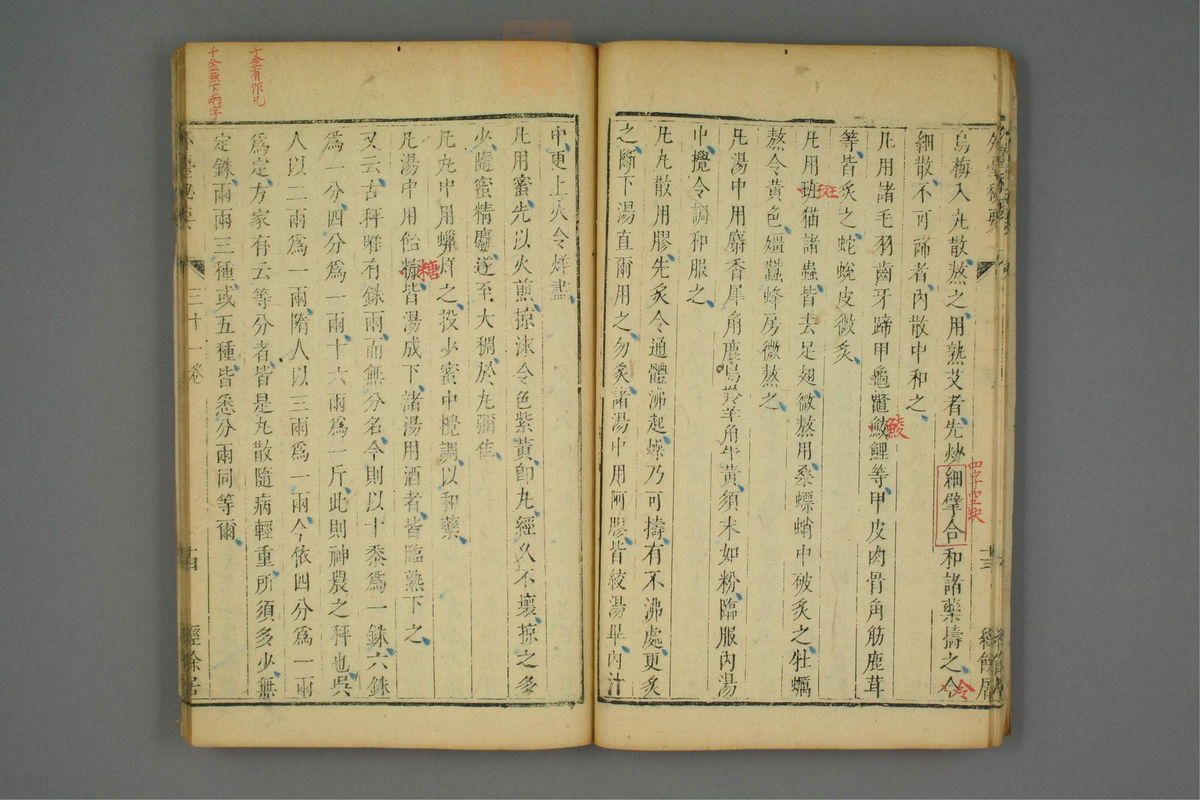 烏梅入丸散熬之用熟艾者先炒細擘合和諸藥擣之令
細散不可篩者內散中和之
凡用諸毛羽齒牙蹄甲龜鼈鮻鯉等甲皮肉骨角筋鹿茸
等皆炙之蛇蛻皮微炙
凡用斑猫諸蟲皆去足翅微熬用桑螵蛸中破炙之牡蠣
熬令黃色殭蠶蜂房微熬之
凡湯中用麝香犀角鹿角羚羊角牛黃須末如粉臨服內湯
中攪令調和服之
凡丸散用膠先炙令通體沸起燥乃可擣有不沸處更炙
之斷下湯直爾用之勿炙諸湯中用阿膠皆絞湯畢內汁
中更上火令烊盡
凡用蜜先以火煎掠沫令色紫黃卽丸經久不壞掠之多
少隨蜜精麤遂至大稠於丸彌佳
凡丸中用蠟烊之投少蜜中攪調以和藥
凡湯中用飴糖皆湯成下諸湯用酒者皆臨熟下之
又云古秤唯有銖兩而無分名今則以十黍爲一銖六銖
爲一分四分爲一兩十六兩爲一斤此則神農之秤也吳
人以二兩爲一兩隋人以三兩爲一兩今依四分爲一兩
爲定方家有云等分者皆是丸散隨病輕重所須多少無
定銖兩兩三種或五種皆悉分兩同等爾
外臺秘要
三十一卷
十四
經餘居
四字空缺
鯪
斑
冷
糖
千金有作凡
千金無下兩字
外臺秘要
十三
經餘居